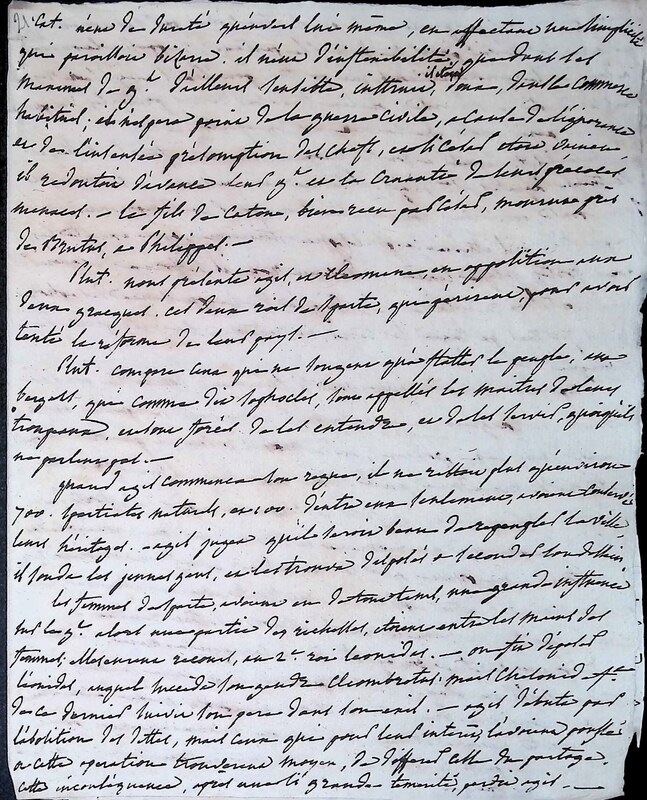 Cat. mêne de dureté qu'envers lui même, en affectant une simplicité
qui paroissoit bizarre. il n'eut d'insensibilité, que dans les
maximes de g.t d'ailleurs sensible, interessé, il étoit doux, dans le commerce
habituel; il n'espera point de la guerre civile, a cause de l'ignorance
et de l'insensée présomption des chefs, et si César etoit vaincu
il redoutoit d'avance leur g.t et la cruauté de leurs féroces
menaces. — le fils de Caton, bien reçu par César, mourut près
de Brutus, a Philippes. —
Plut. nous présente agis, et Cleomene, en opposition aux
deux gracques. ces deux rois de sparte, qui périrent, pour avoir
tenté la réforme de leur pays. —
Plut. compare ceux qui ne songent qu'a flatter le peuple, aux
bergers, qui comme dit sophocles, sont appellés les maitres de leurs
troupeaux, et sont forcés de les entendre, et de les servir, quoiqu'ils
ne parlent pas. —
quand agis commença son regne, il ne restoit plus qu'environ
700. spartiates naturels, et 100. d'entre eux seulement, avoient conservé
leurs héritages. — agis jugea qu'il seroit beau de repeupler la ville.
il sonda les jeunes gens, et les trouva disposés a seconder son dessein.
les femmes de sparte, avoient eu de tout tems, une grande influence
sur le g.t alors une partie des richesses, étoient entre les mains des
femmes. elles eurent recours, au 2.e roi leonidas. — on fit déposer
léonidas, auquel succéda son gendre Cleombrotus. mais Chelonis f.e
de ce dernier suivit son pere dans son exil. — agis débute par
l'abolition des dettes, mais ceux que pour leur intérêt, l'avoient poussé
a cette operation trouverent moyen, de differer celle du partage.
cette inconséquence, après une si grande témérité, perdit agis. —